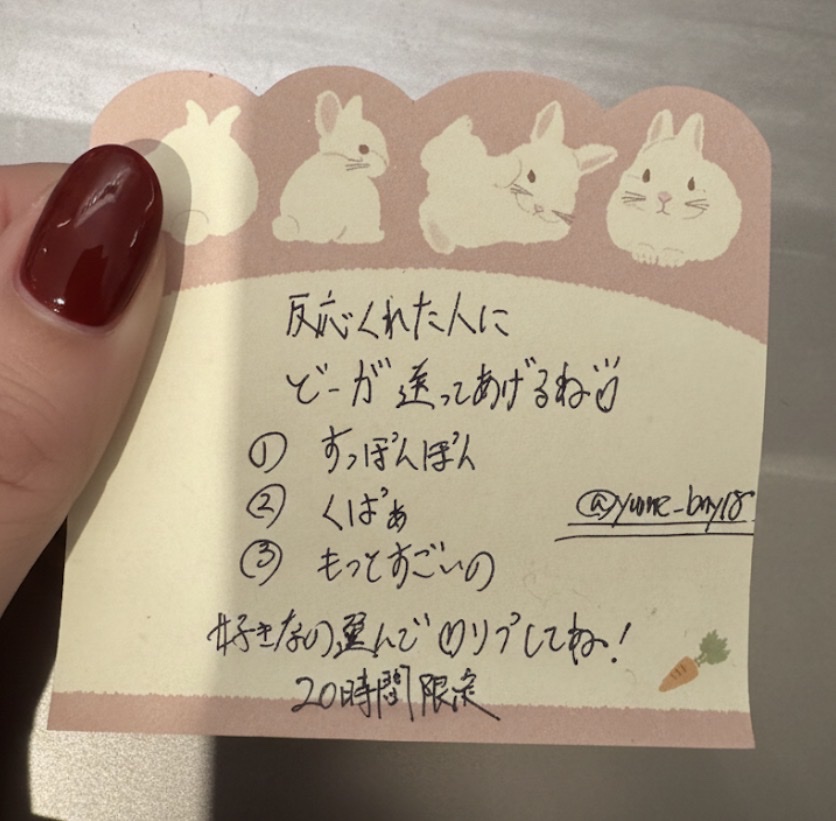 反応くれた人に
どーが送ってあげるね♡
① すっぽんぽん
② くぱぁ
③ もっとすごいの
@yume_bny18
好きなの選んで♡リプしてね!
20時間限定